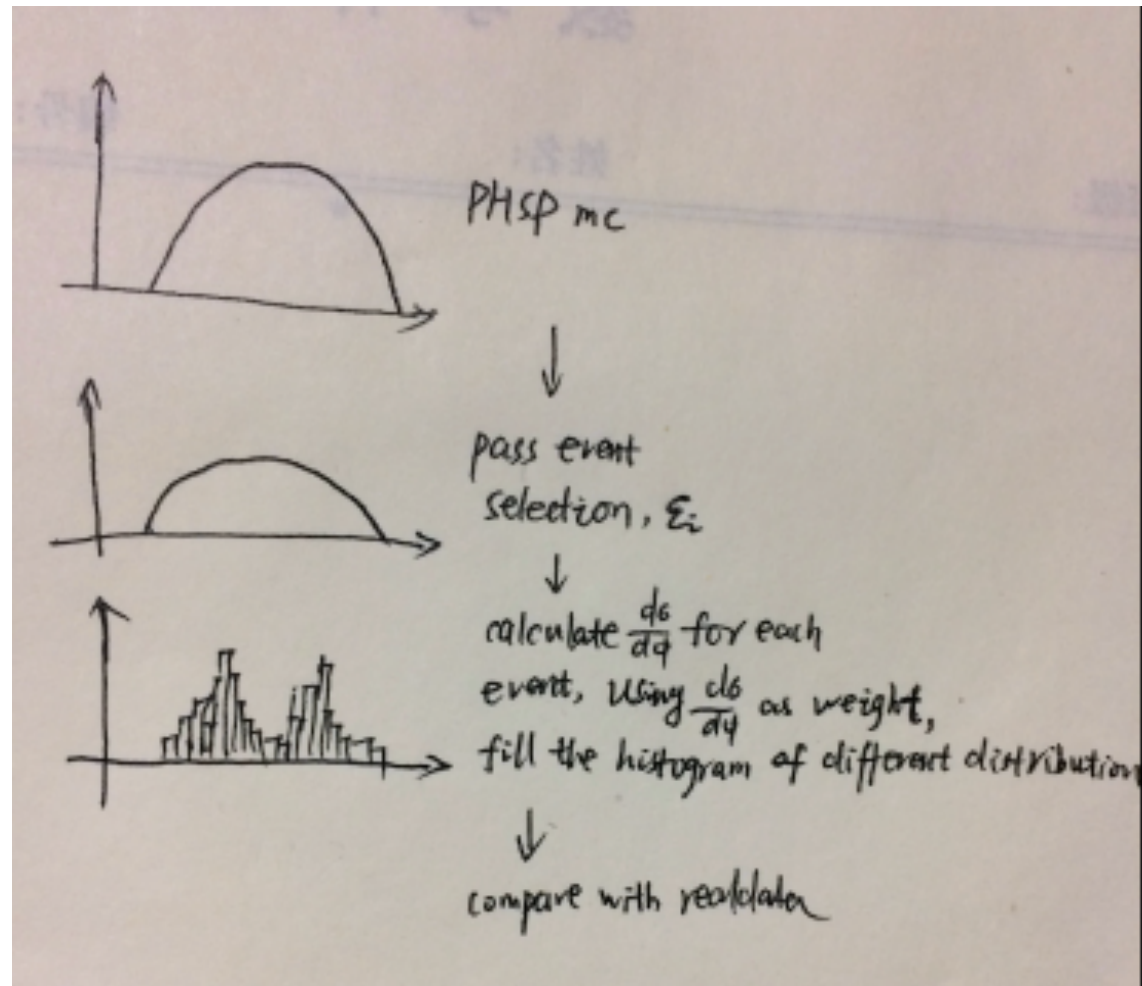 PHSP mc
↓
pass event
selection, εi
↓
calculate dσ/dφ for each
event, using dσ/dφ as weight,
fill the histogram of different distribution
↓
compare with realdata